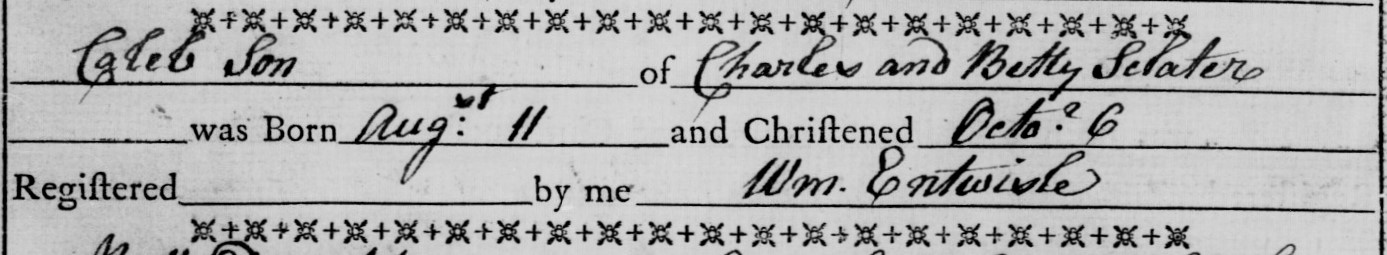 Caleb Son of Charles and Betty Sclater
was Born Aug:st 11 and Chriſtened Octo.r 6
Regiſtered by me Wm. Entwisle